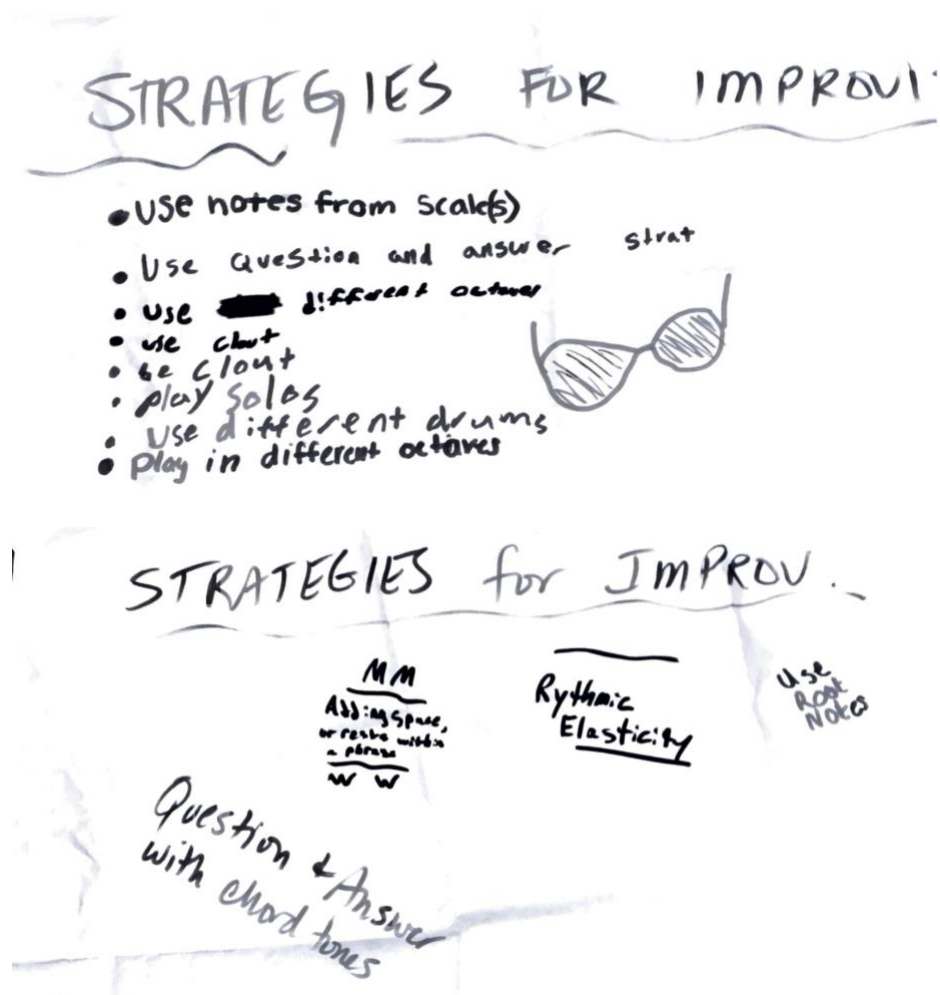 STRATEGIES FOR IMPROVI
• Use notes from scale(s)
• Use Question and answer strat
• use different octaves
• use clout
• be clout
• play solos
• Use different drums
• Play in different octaves
STRATEGIES for IMPROV.
MM
Adding space,
or rests within
a phrase
W W
Rythmic
Elasticity
Use
Root
Notes
Question & Answer
with chord tones